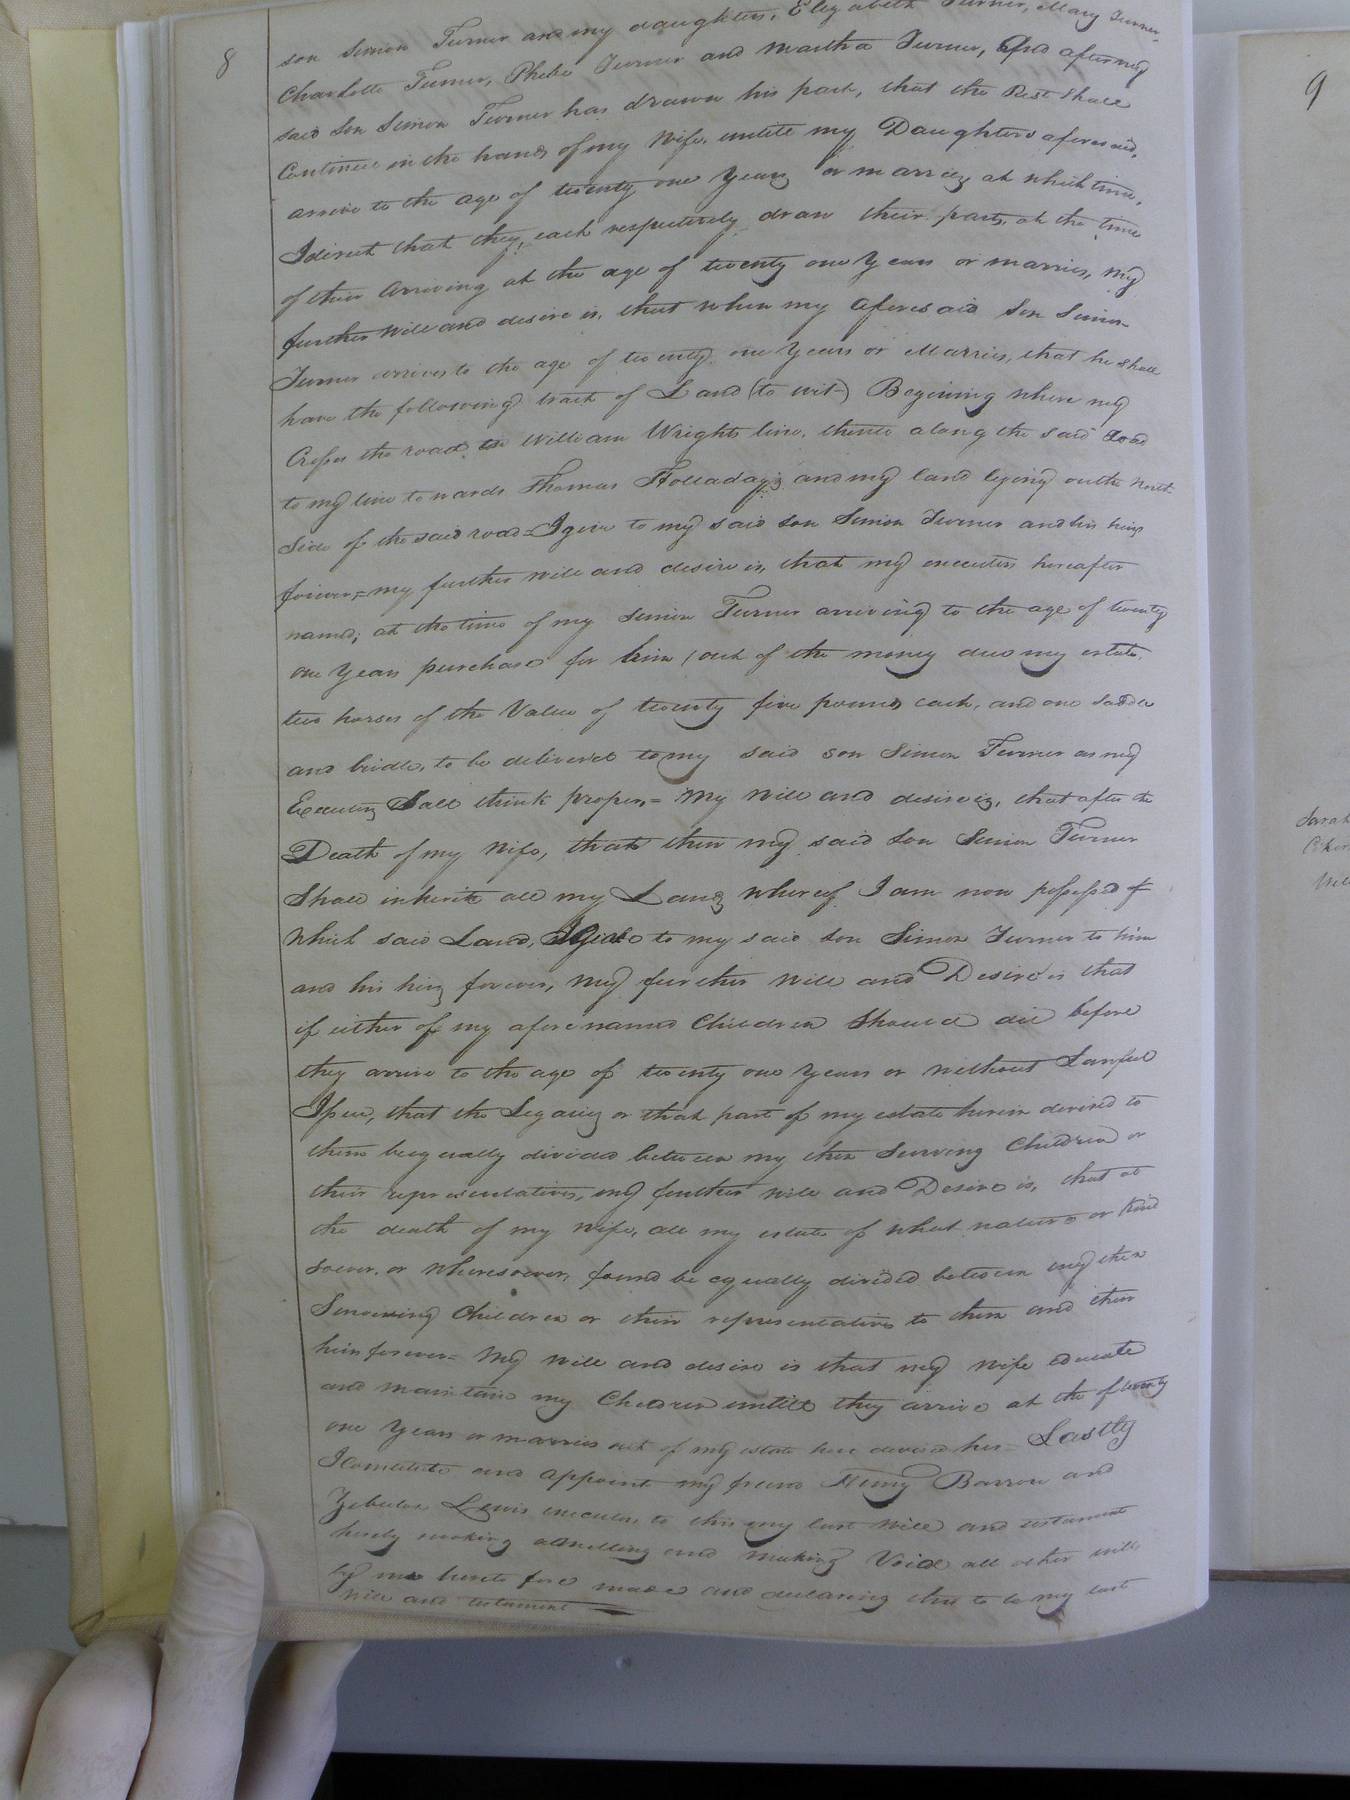 8
son Simon Turner and my daughters, Elizabeth Turner, Mary Turner,
Charlotte Turner, Phebe Turner and Martha Turner, And after my
said Son Simon Turner has drawn his part, that the Rest Shall
Continue in the hands of my Wife, untill my Daughters aforesaid,
arrive to the age of twenty one Years or marry at which time,
I direct that they, each respectively draw their parts, at the time
of their arriving at the age of twenty one Years or marries, my
further will and desire is, that when my aforesaid Son Simon
Turner arrives to the age of twenty one Years or Marries, that he shall
have the following tract of Land (to wit) Begining where my
Crosses the road to William Wrights line, thence along the said Road
to my line towards Thomas Holladays and my land lying on the North
Side of the said road I give to my said son Simon Turner and his heirs
forever = my further will and desire is, that my executors hereafter
named; at the time of my Simon Turner arriving to the age of twenty
one Years purchase for him (out of the money due my estate
two horses of the Value of twenty five pounds each, and one Saddle
and bridle, to be deliver'd to my said son Simon Turner as my
Executors Shall think proper, = My will and desire is, that after the
Death of my Wife, that then my said Son Simon Turner
Shall inherit all my Land whereof I am now possessed of
which said Land, I give to my said son Simon Turner to him
and his heirs forever, my further will and Desire is that
if either of my aforenamed Children Should die before
they arrive to the age of twenty one Years or without Lawful
Issue, that the Legacies or that part of my estate herein devised to
them be equally divided between my then Surviving Children or
their representatives, my further will and Desire is, that at
the death of my Wife, all my estate of what nature or kind
soever, or wheresoever, found be equally divided between my then
Surviving Children or their representatives to them and their
heirs forever = My will and desire is that my wife educate
and maintain my Children untill they arrive at the of twenty
one Years or marries out of my estate here devised her = Lastly
I Constitute and appoint my friend Henry Barrow and
Zebulon Lewis executors to this my last will and testament
hereby revoking and making Void all other wills
by me heretofore made and declaring this to be my last
will and testament
9
Sarah